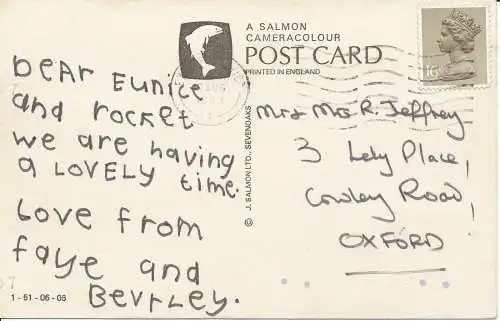 A SALMON
CAMERACOLOUR
POST CARD
PRINTED IN ENGLAND
DEAR EUNICE
and rocket
we are having
a LOVELY time.
Love from
faye and
BEVRLEY.
1-51-06-06
© J. SALMON LTD., SEVENOAKS
Mr & Mrs R. Jeffrey
3 Lely Place,
Cowley Road,
OXFORD
16